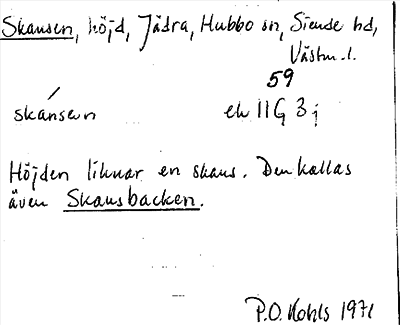 Skansen, höjd, Jädra, Hubbo sn, Siende hd,
Västm. l.
59
skánsen ek 11G 3j
Höjden liknar en skans. Den kallas
även Skansbacken.
P.O. Kohls 1971